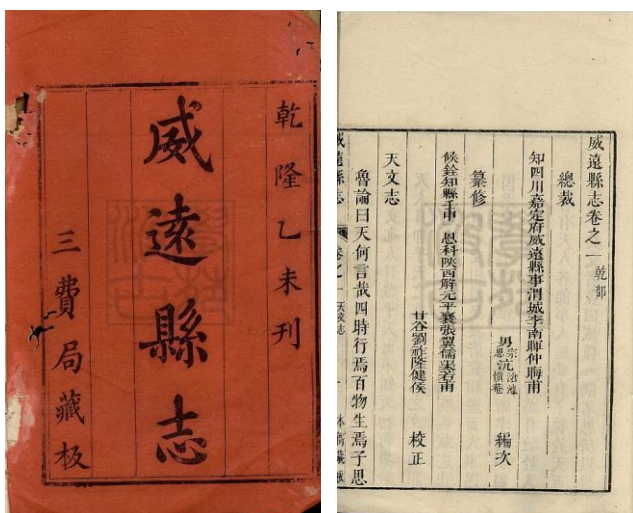 乾隆乙未刊
威遠縣志
三費局藏板
威遠縣志卷之一 乾部
總裁
知四川嘉定府威遠縣事渭城李南暉仲晦甫
男 宗沆 編次
纂修
候銓知縣壬申 恩科陝西解元平襄張翼儒渠若甫
甘谷劉祚隆健侯 校正
天文志
魯論曰天何言哉四時行焉百物生焉子思
威遠縣志 卷之一 天文志 一